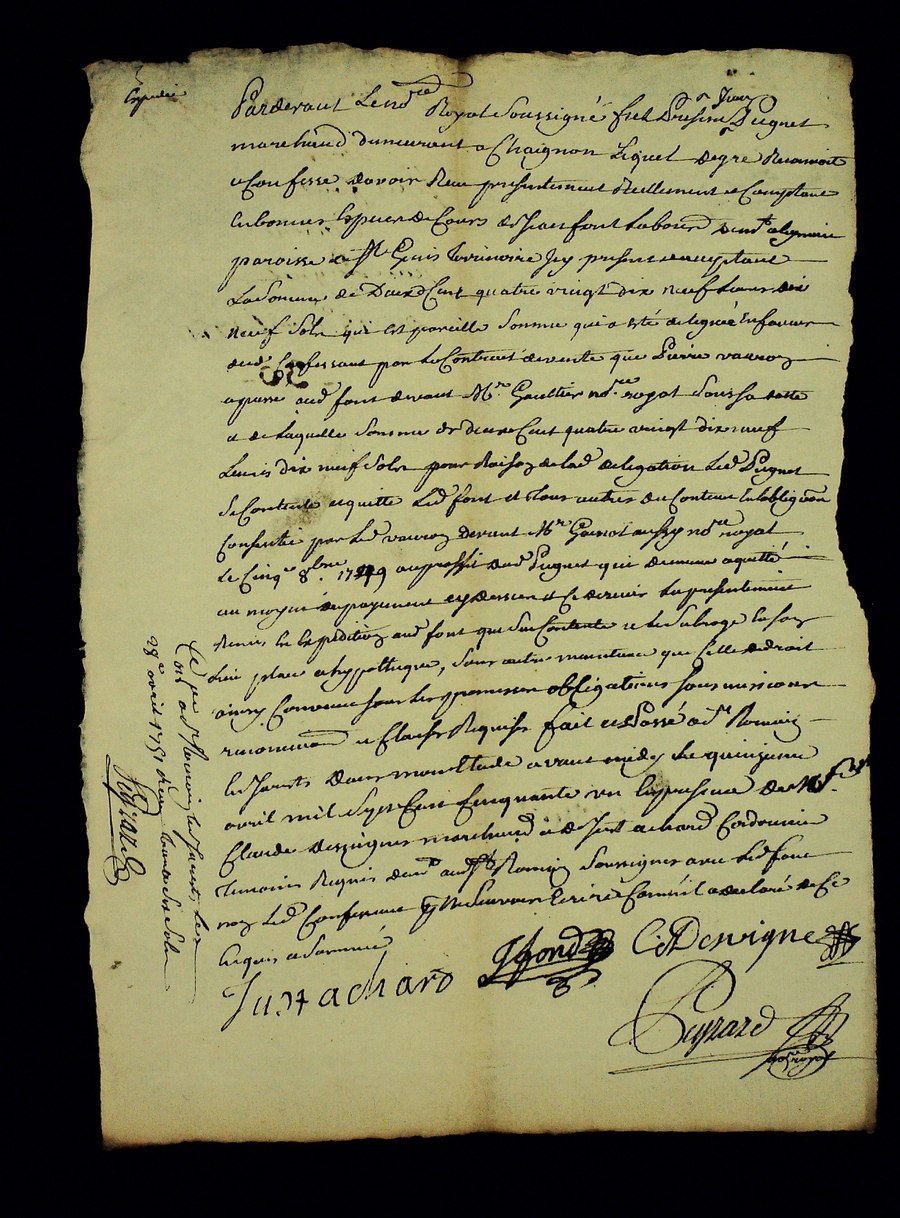 Expedié
Pardevant Le nore Royal Soussigné fut Present Jean Pugnet
marchand demeurant a Chaignon Lequel de gré Reconnoit
et Confesse davoir Receu presentement Reellement et Comptant
en bonnes Especes de Cours de Jean font Laboureur demt
paroisse de St Genis terrenoire Icy present acceptant
La Somme de Deux Cent quatre vingt dix neuf Livres dix
neuf Sols qui est pareille Somme qui a esté deleguée En faveur
dud Confessant par Le Contract de vente que Pierre vauron
a passé aud font devant Mre Gaultier nore royal Sous sa datte
et de Laquelle Somme de deux Cent quatre vingt dix neuf
Livres dix neuf Sols pour Raison de lad delegation Led Pugnet
Se Contente et quitte Led font et tous autres du Contenu En lobligaon
Consentie par Led vauron devant Mre aussy nore royal
Le Cinqe 8bre 1749 au proffit dud Pugnet qui demeure aquitté
au moyen du payement cy dessus et Ce dernier a presentement
Remis Les Expeditions aud font qui Sen Contente et Le Subroge En Son
Lieu place et hypotheque, Sans autre maintenue que Celle de droit
ainsy Convenu Sous Les promesses obligations Soumissions
renonciaons et Clauses Requises fait et Passé a St Romain
les Jarets dans mon Etude avant midy Le quinzieme
avril mil Sept Cent Cinquante un En presence de Sr
Claude Desvignes marchand et de Just achard Cordonnier
temoins Requis demt aud St Romain Soussignes avec Led font
non Led Confessant pr ne Scavoir Ecrire Comme il a declaré de Ce
Enquis et Sommé
Just achard
J font
Cl Desvigne
Peyrard
nore royal
Cé
Con a St Romain les Jarests, Le
28e avril 1751 Reçu Sols
Peyrard